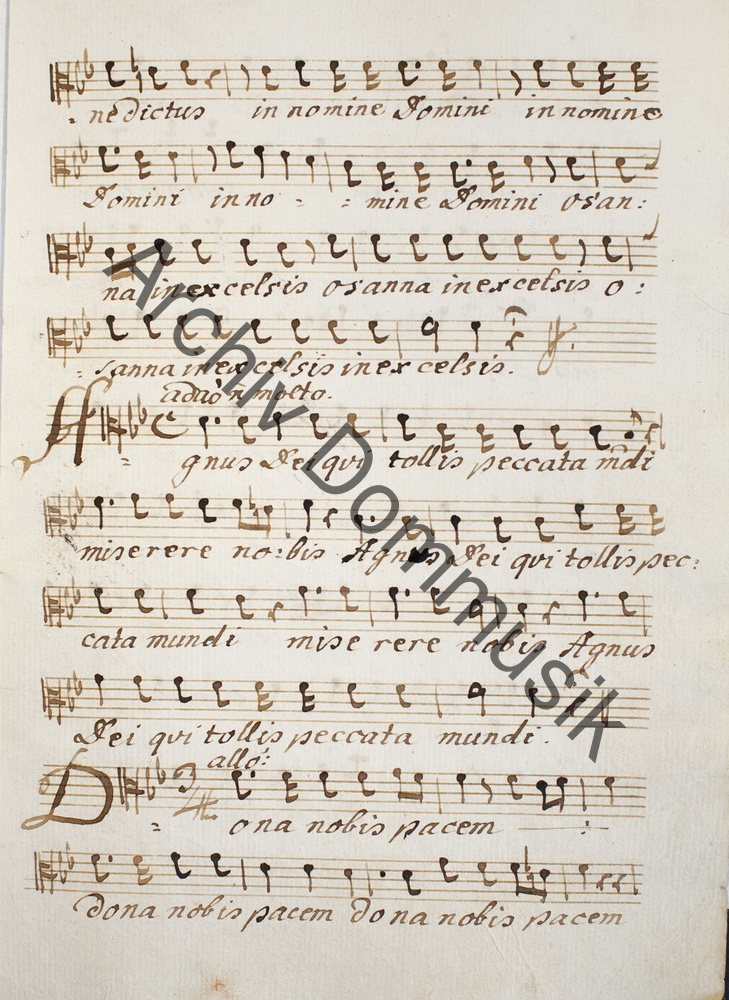 nedictus in nomine Domini in nomine
Domini in no - - mine Domini osan:
na in excelsis osanna in excelsis o:
- sanna in excelsis in excelsis.
molto.
A= gnus Dei qui tollis peccata mūdi
miserere no:bis Agnus Dei qui tollis pec:
cata mundi mise rere nobis Agnus
Dei qui tollis peccata mundi.
allo:
D= ona nobis pacem
dona nobis pacem dona nobis pacem
Archiv Dommusik